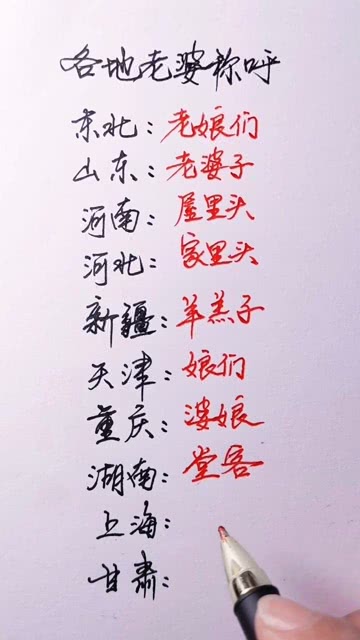 各地老婆称呼
东北：老娘们
山东：老婆子
河南：屋里头
河北：家里头
新疆：羊羔子
天津：娘们
重庆：婆娘
湖南：堂客
上海：
甘肃：